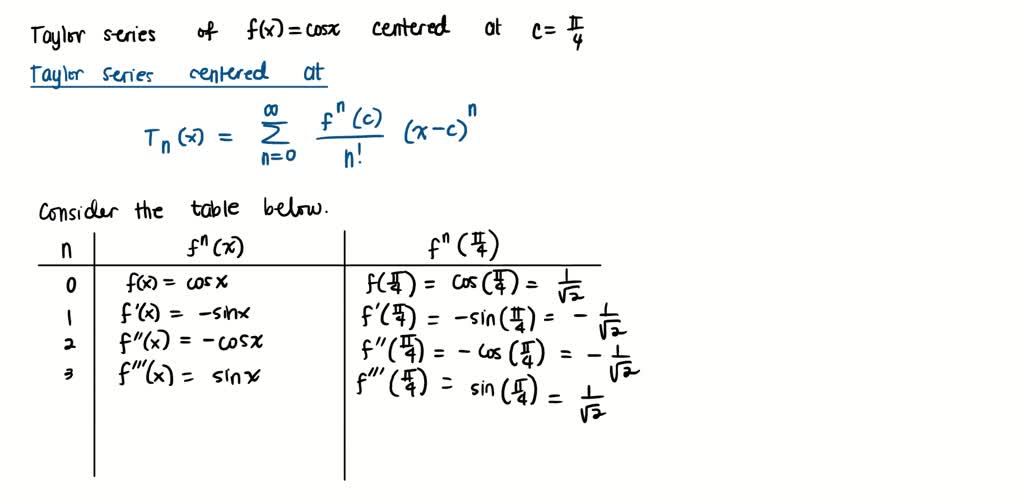 Taylor series of f(x) = cosx centered at c = π/4
Taylor series centered at
Tₙ(x) = ∑_{n=0}^{∞} fⁿ(c)/n! (x-c)ⁿ
Consider the table below.
n fⁿ(x) fⁿ(π/4)
0 f(x) = cosx f(π/4) = cos(π/4) = 1/√2
1 f'(x) = -sinx f'(π/4) = -sin(π/4) = -1/√2
2 f''(x) = -cosx f''(π/4) = -cos(π/4) = -1/√2
3 f'''(x) = sinx f'''(π/4) = sin(π/4) = 1/√2